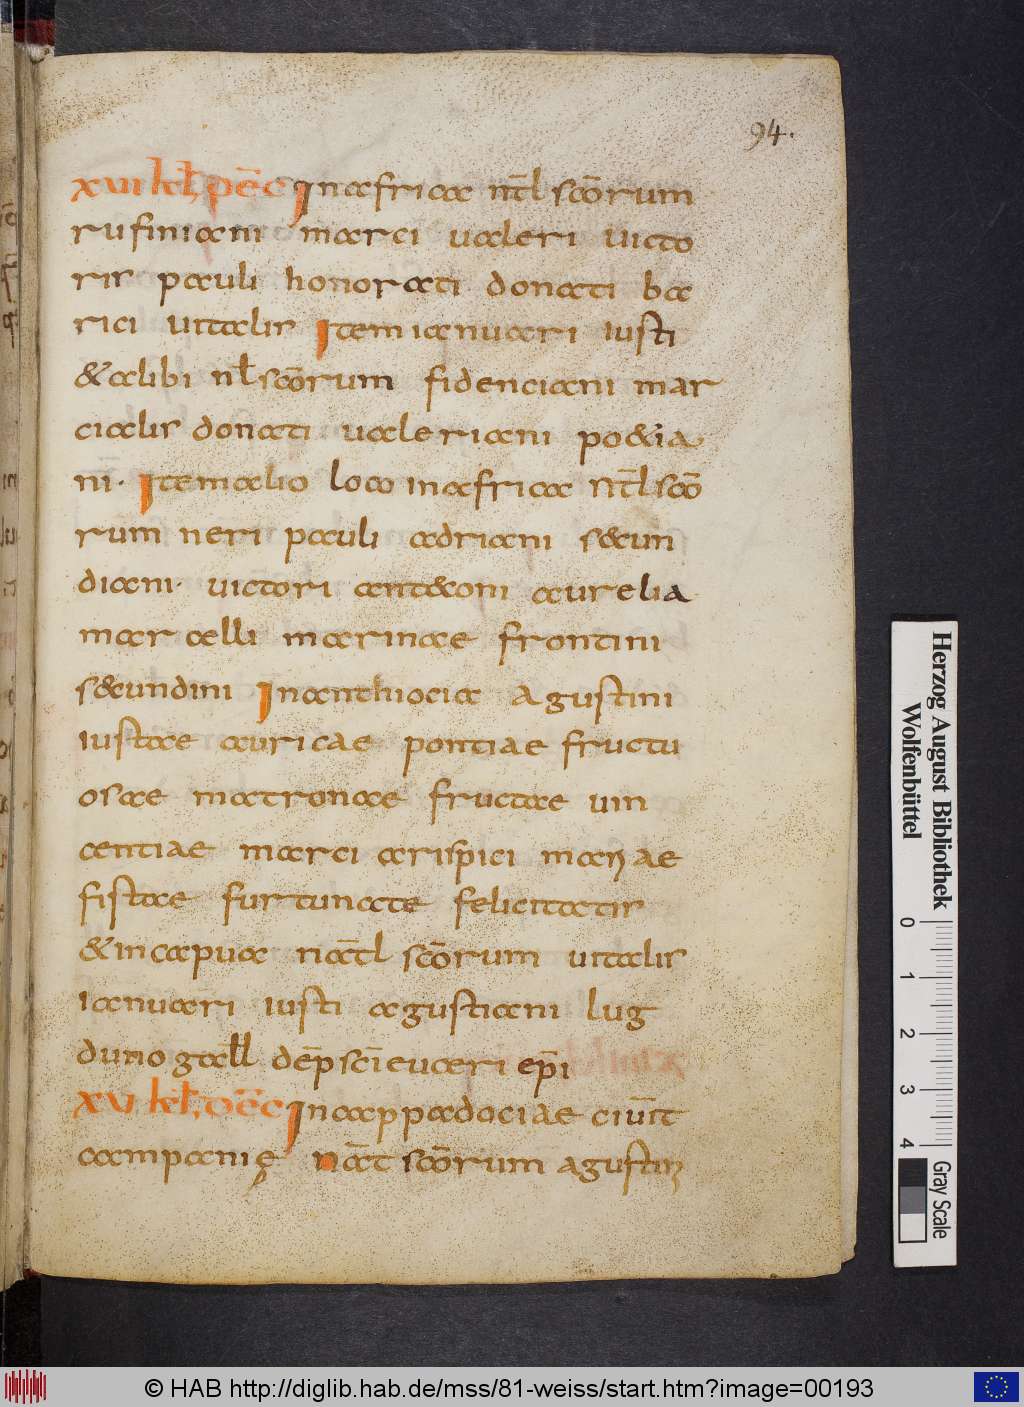 94.
XVII kl̅ DEC̅ In africa nt̅l sc̅orum
rufiniani marci valeri victo
ris pauli honorati donati ba
rici vitalis Item ianuari iusti
& alibi nl̅ sc̅orum fidenciani mar
cialis donati valeriani po&ia
ni · Item alio loco in africa nt̅l sc̅o
rum neri pauli adriani s&un
diani · victori ant&oni aurelia
marcelli marinae frontini
s&undini In anthiocia agustini
iustae auricae pontiae fructu
osae matronae fructae vin
centiae marci arispici mariae
fistae furtunate felicitatis
& in capua nat̅l sc̅orum vitalis
Ianuari iusti agustiani lug
duno gall̅ dep̅ sc̅i euueri ep̅i
XVI kl̅ DEC̅ In cappadociae ciuit̅
campanię nat̅ sc̅orum agustin
Herzog August Bibliothek
Wolfenbüttel
0 1 2 3 4
Gray Scale
© HAB http://diglib.hab.de/mss/81-weiss/start.htm?image=00193